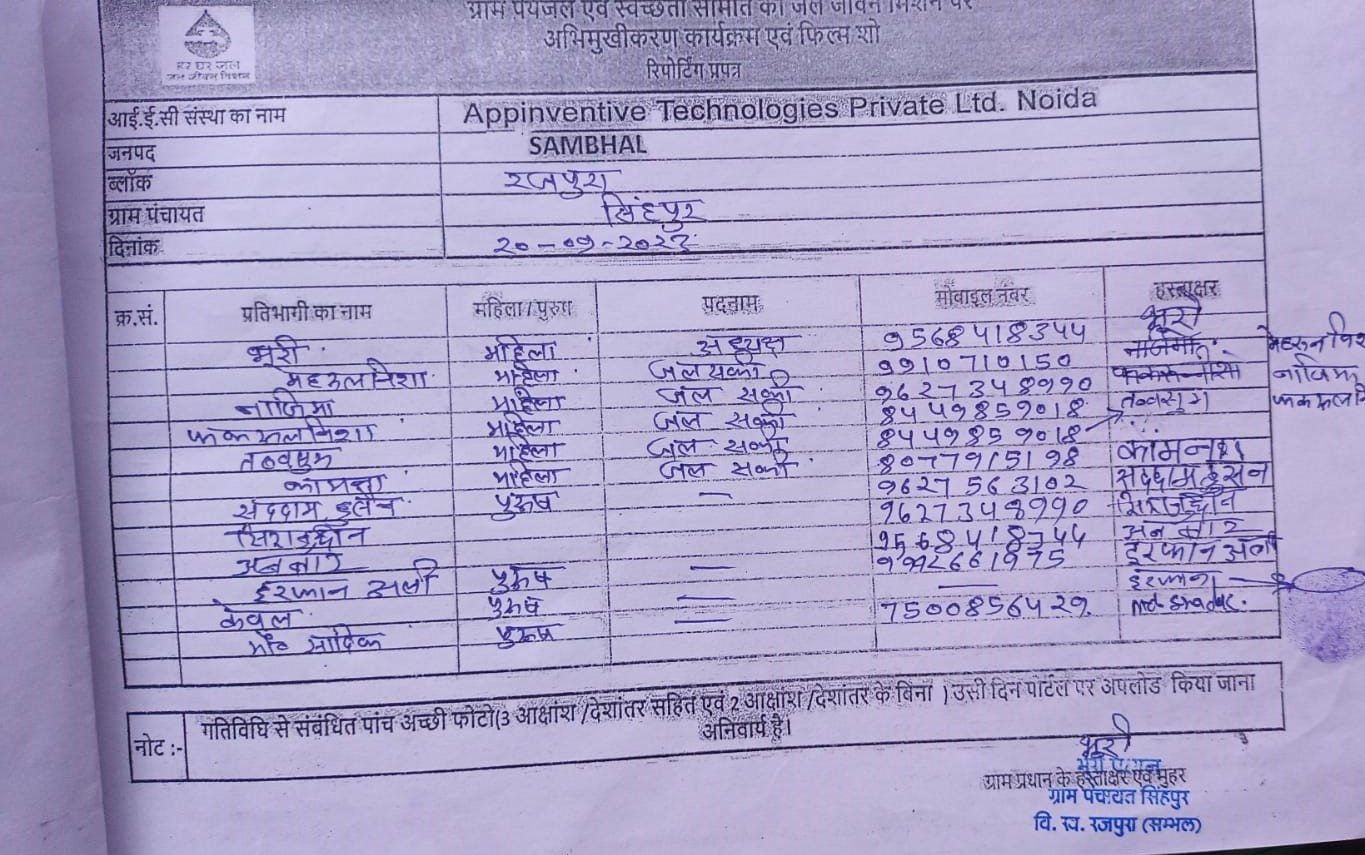 ग्राम पेयजल एवं स्वच्छता समिति का जल जीवन मिशन पर
अभिमुखीकरण कार्यक्रम एवं फिल्म शो
रिपोर्टिंग प्रपत्र
हर घर जल
जल जीवन मिशन
आई.ई.सी संस्था का नाम Appinventive Technologies Private Ltd. Noida
जनपद SAMBHAL
ब्लॉक रजपुरा
ग्राम पंचायत सिंहपुर
दिनांक 20-09-2022
क्र.सं. प्रतिभागी का नाम महिला / पुरुष पदनाम मोबाइल नंबर हस्ताक्षर
भूरी महिला अध्यक्ष 9568418344 भूरी
महिला जल सखी 9910710150
नाजिमा महिला जल सखी 9627348990
महिला जल सखी 8449859018
महिला जल सखी 8449859018
महिला जल सखी 8077915198
सद्दाम हुसैन पुरुष — 9627563102 सद्दाम हुसैन
सिराजुद्दीन 9627348990 सिराजुद्दीन
9568418344
इरफान अली पुरुष — 9992661975 इरफान अली
केवल पुरुष — —
मौ० सादिक पुरुष — 7500856429
नोट :- गतिविधि से संबंधित पांच अच्छी फोटो(3 आक्षांश /देशांतर सहित एवं 2 आक्षांश /देशांतर के बिना ) उसी दिन पोर्टल पर अपलोड किया जाना
अनिवार्य है।
भूरी
ग्राम प्रधान के हस्ताक्षर एवं मुहर
ग्राम पंचायत सिंहपुर
वि. ख. रजपुरा (सम्भल)